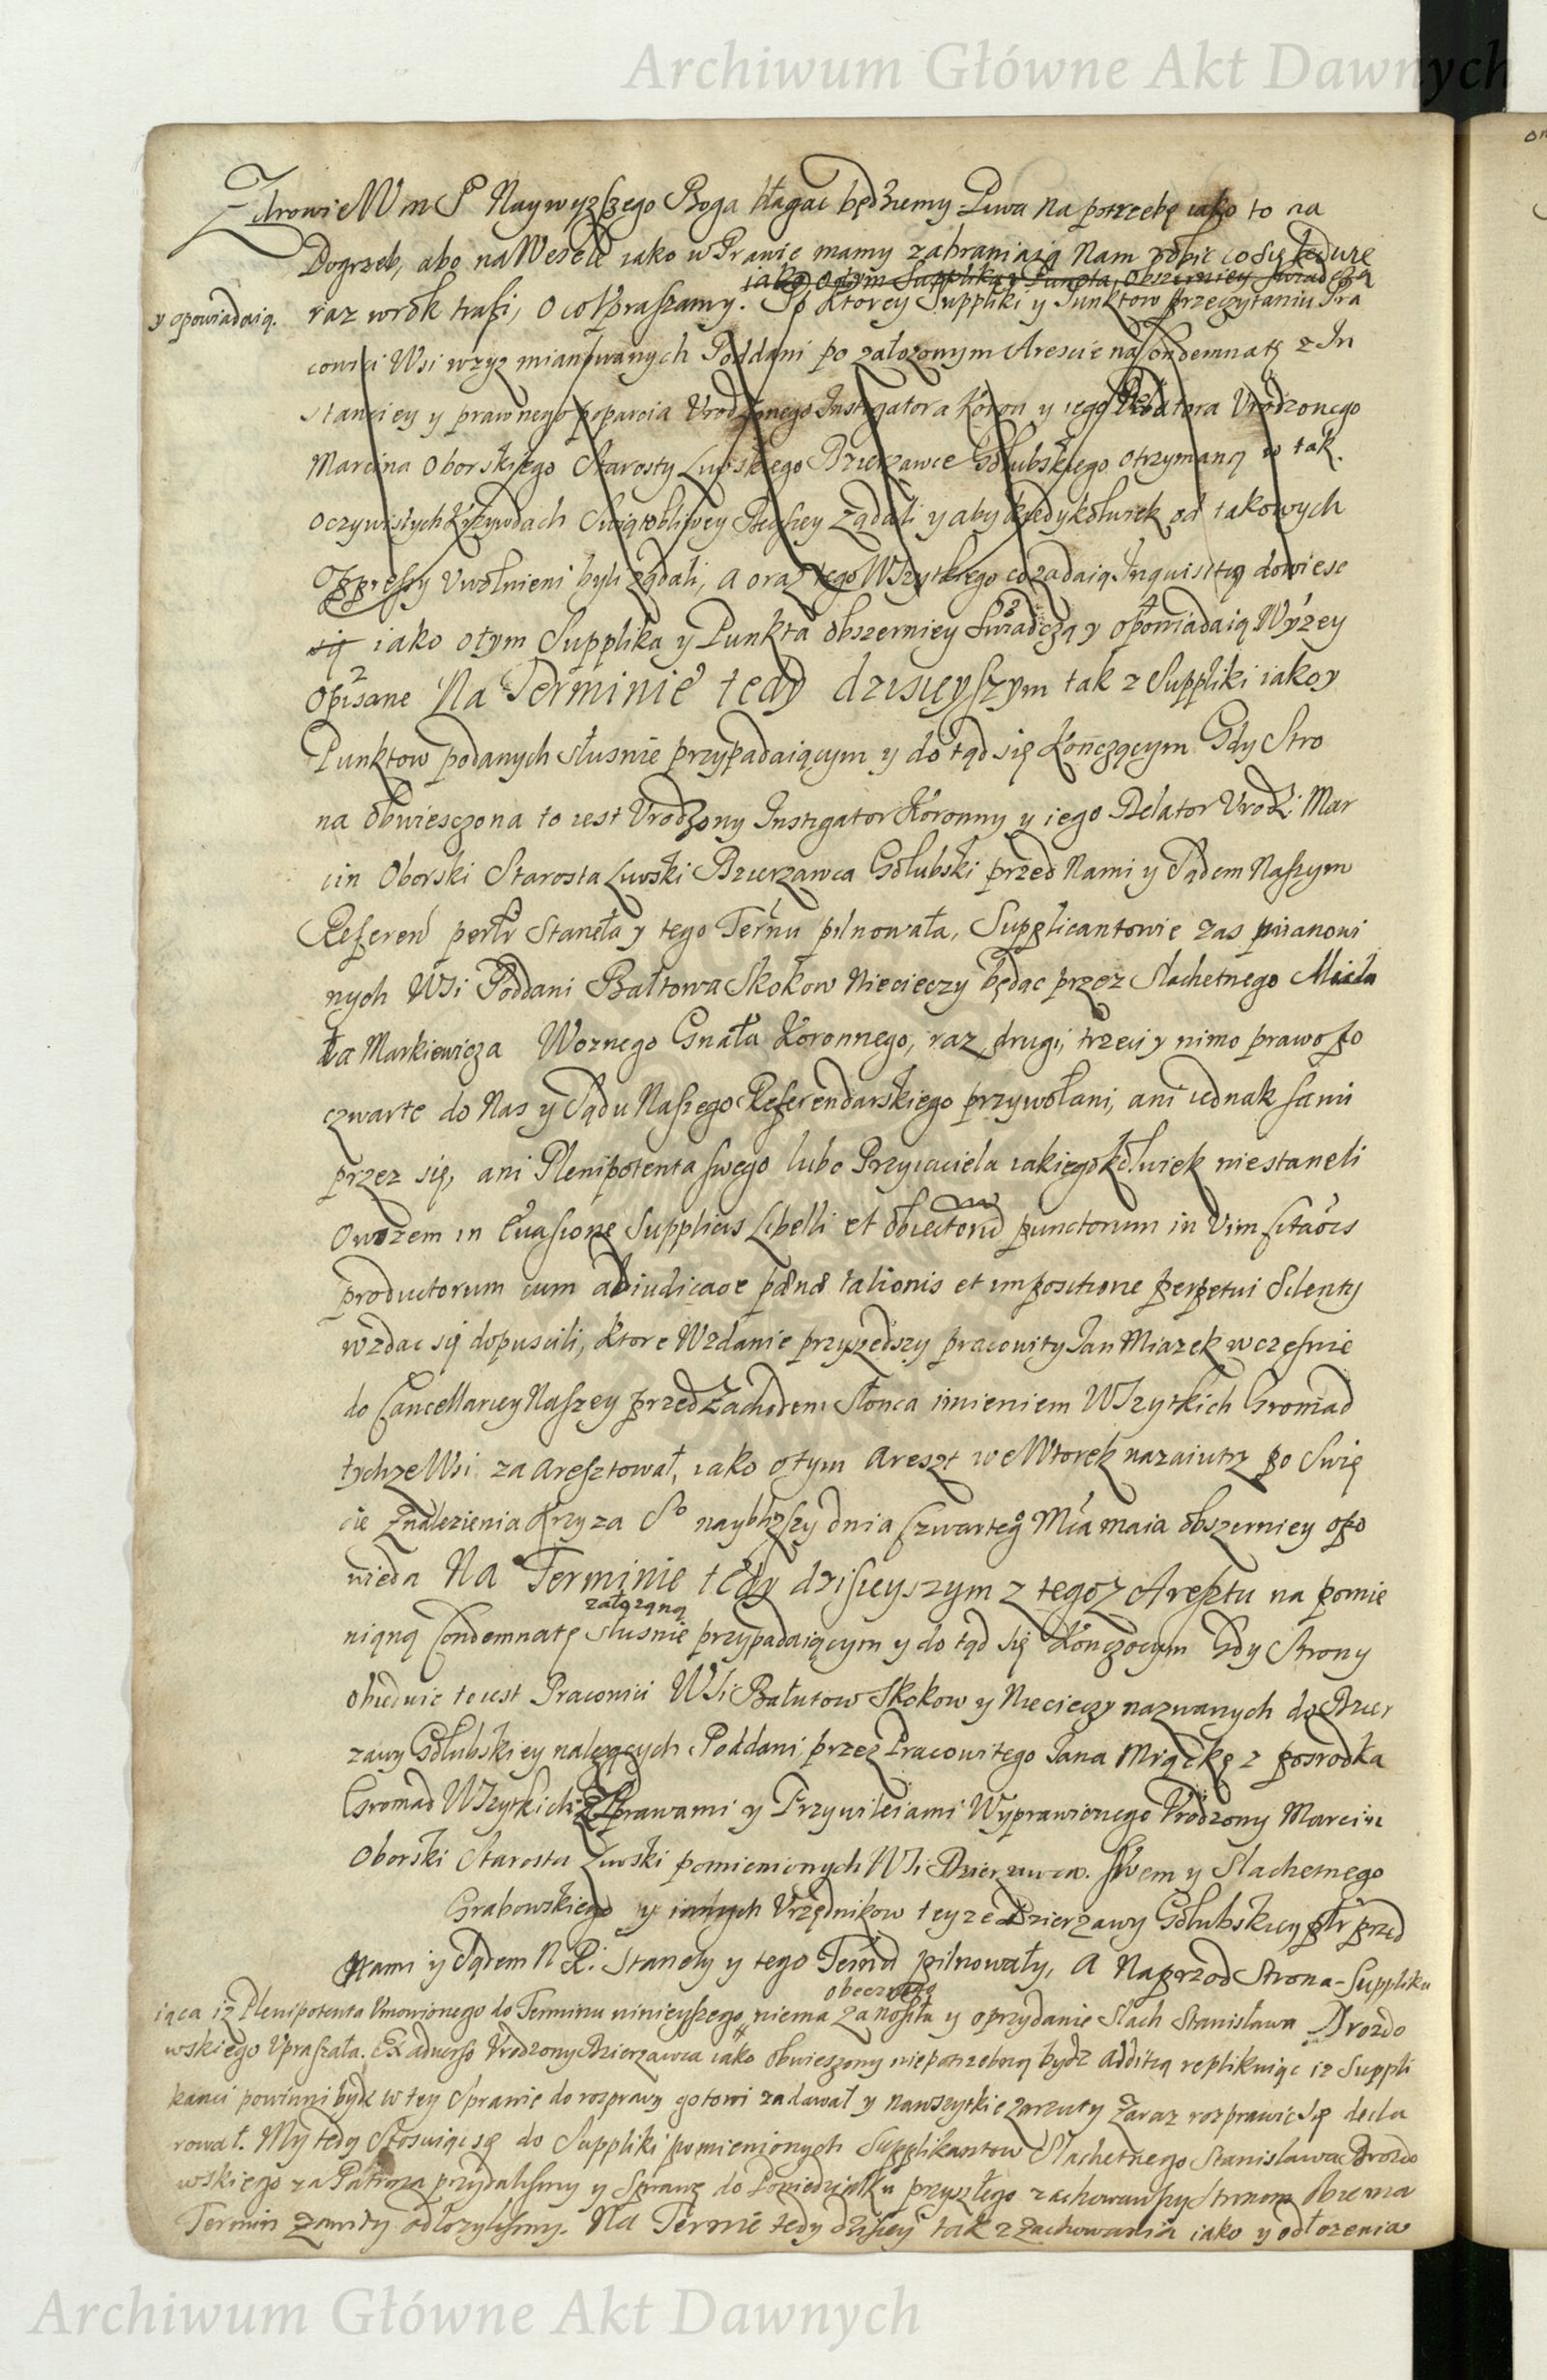 Archiwum Główne Akt Dawnych
Zdrowie W m P Naywyzszego Boga błagac będziemy Piwa na potrzebę iako to na
Pogrzeb, abo na Wesele iako w Prawie mamy zabraniaią Nam robic co się kedusz
iako o tym Supplika y Punkta obszerniey swiadczą
y opowiadaią.
raz w rok trafi, o co Vpraszamy. Po ktorey Suppliki y Punktow przeczytaniu Pra
cowici Wsi wzyz mianowanych Poddani po załozonym Arescie na Condemnatę z In
stanciey y prawnego poparcia Vrodzonego Instigatora Koron y iego Delatora Vrodzonego
Marcina Oborskiego Starosty Liwskiego Dzierzawce Gołubskiego otrzymaną w tak
oczywistych Krzywdach Swiątobliwey Decisiey Ządali y aby kiedykolwiek od takowych
Oppressy Vwolnieni byli ządali, a oraz tego Wszytkiego co zadaią Inquisitią dowiesc
się iako o tym Supplika y Punkta obszerniey swiadczą y opowiadaią Wyzey
opisane Na Terminie tedy dzisieyszym tak z Suppliki iako y
Punktow podanych słusnie przypadaiącym y do tąd się Kończącym Gdy Stro
na obwiesczona to iest Vrodzony Instigator Koronny y iego Delator Vrodz: Mar
cin Oborski Starosta Liwski Dzierzawca Gołubski przed Nami y Sądem Naszym
Referend perlr Staneła y tego Termu pilnowała, Supplicantowie zas mianowi
nych Wsi Poddani Bałtowa Skokow Niecieczy będąc przez Slachetnego Micha
ła Markiewicza Woznego Gnała Koronnego, raz, drugi, trzeci y nimo prawo po
czwarte do Nas y Sądu Naszego Referendarskiego przywołani, ani iednak sami
przez się, ani Plenipotenta swego lubo Przyiaciela iakiegokolwiek niestaneli
Owszem in Evasione Supplicis Libelli et obiectorum punctorum in vim citaois
productorum cum adiudicaoe pænæ talionis et impositione perpetui Silenty
wzdac się dopuscili, ktore Wzdanie przyszedszy pracowity Jan Miazek wczesnie
do Cancellariey Naszey przed Zachodem Słonca imieniem Wszytkich Gromad
tychze Wsi zaaresztował, iako o tym Areszt we Wtorek nazaiutrz po Swię
cie Znalezienia Krzyza So naybliszszy dnia czwarteg Mca maia obszerniey opo
wieda Na Terminie tedy dzisieyszym z tegoz Aresztu na pomie
załozoną
nioną Condemnatę słusnie przypadaiącym y do tąd się Kończocym Gdy Strony
obiedwie to iest Pracowici Wsi Bałutow Skokow y Niecieczy nazwanych do Dzier
zawy Gołubskiey nalezących Poddani przez Pracowitego Jana Miązkę z posrodka
Gromad Wszytkich z Prawami y Przywileiami Wyprawionego Vrodzony Marcin
Oborski Starosta Liwski pomienionych Wsi Dzierzawca. swem y Slachetnego
Grabowskiego y innych Vrzędnikow teyze Dzierzawy Gołubskiey plr przed
Nami y Sądem N R: Stanely y tego Termu pilnowały, A Naprzod Strona Suppliku
obecznego
iąca iz Plenipotenta Vmowionego do Terminu ninieyszego niema zanosiła y o przydanie Slach Stanisława Drozdo
wskiego Vpraszała. Ex adverso Vrodzony Dzierzawca iako obwieszony niepotrzebną bydz additią replikuiąc iz Suppli
kanci powinni bydz w tey Sprawie do rozprawy gotowi zadawał y na wszytkie zarzuty Zaraz rozprawic się decla
rował. My tedy stosuiąc się do Suppliki pomienionych Supplikantow Slachetnego Stanisława Drozdo
wskiego za Patrona przydalismy y Sprawę do Poniedziałku przyszłego zachowawszy Stronom Obiema
Termin zawity odłozylismy. Na Termie tedy dzisiey tak z zachowania iako y odłozenia
Archiwum Główne Akt Dawnych